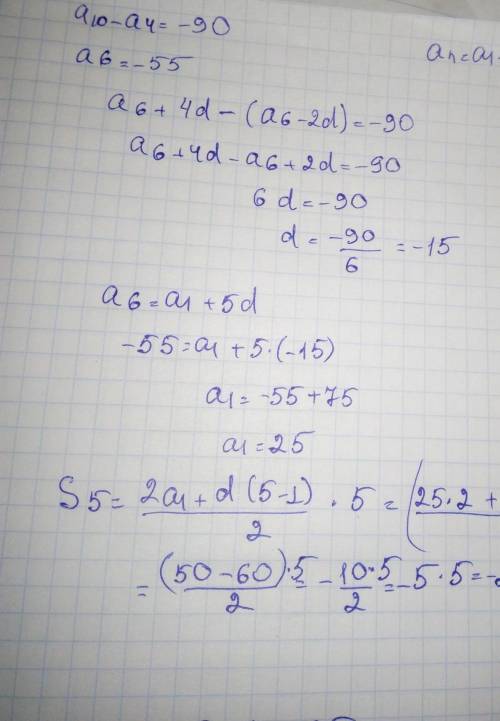 a10 - a4 = -90
a6 = -55
an = a1
a6 + 4d - (a6 - 2d) = -90
a6 + 4d - a6 + 2d = -90
6d = -90
d = -90/6 = -15
a6 = a1 + 5d
-55 = a1 + 5·(-15)
a1 = -55 + 75
a1 = 25
S5 = 2a1 + d(5-1)/2 · 5 = (25·2 +
= (50-60)·5/2 = -10·5/2 = -5·5 = -